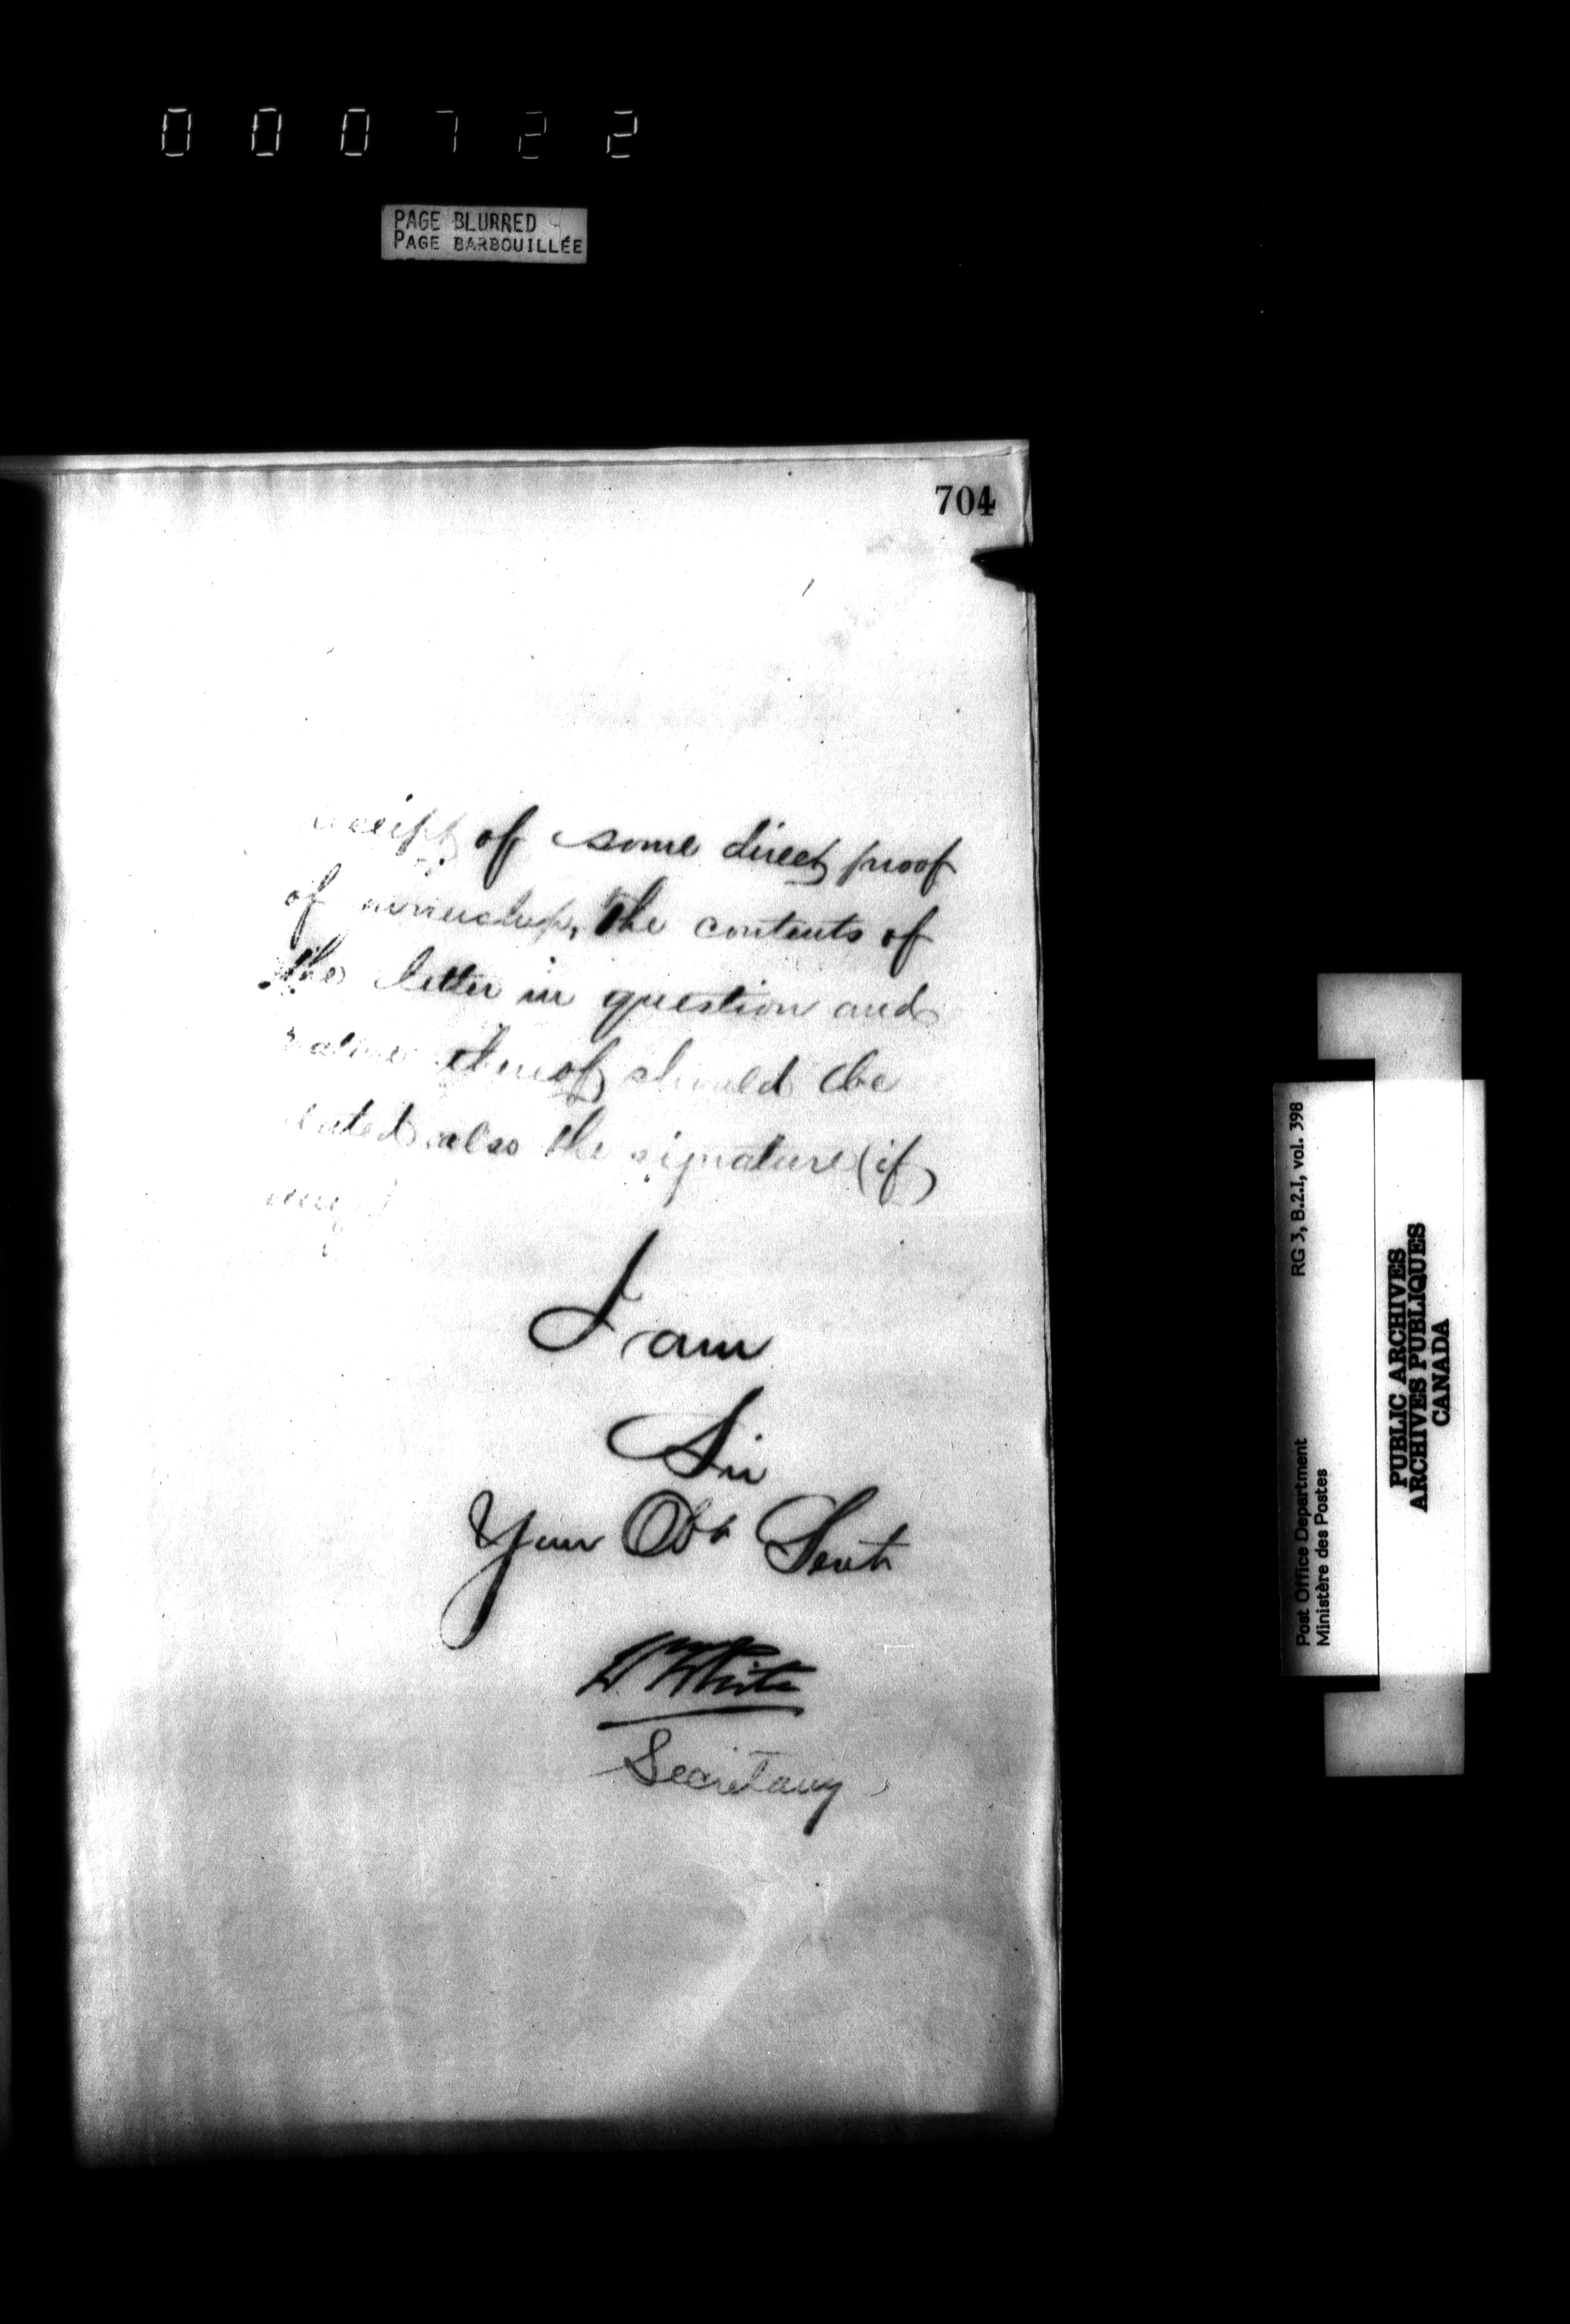 000722
PAGE BLURRED
PAGE BARBOUILLÉE
704
receipt of some direct proof
of ownership, the contents of
the letter in question and
value thereof should be
stated also the signature (if
any)
I am
Sir
Your Obt Servt
W White
Secretary
Post Office Department RG 3, B.2.I, vol. 398
Ministère des Postes
PUBLIC ARCHIVES
ARCHIVES PUBLIQUES
CANADA